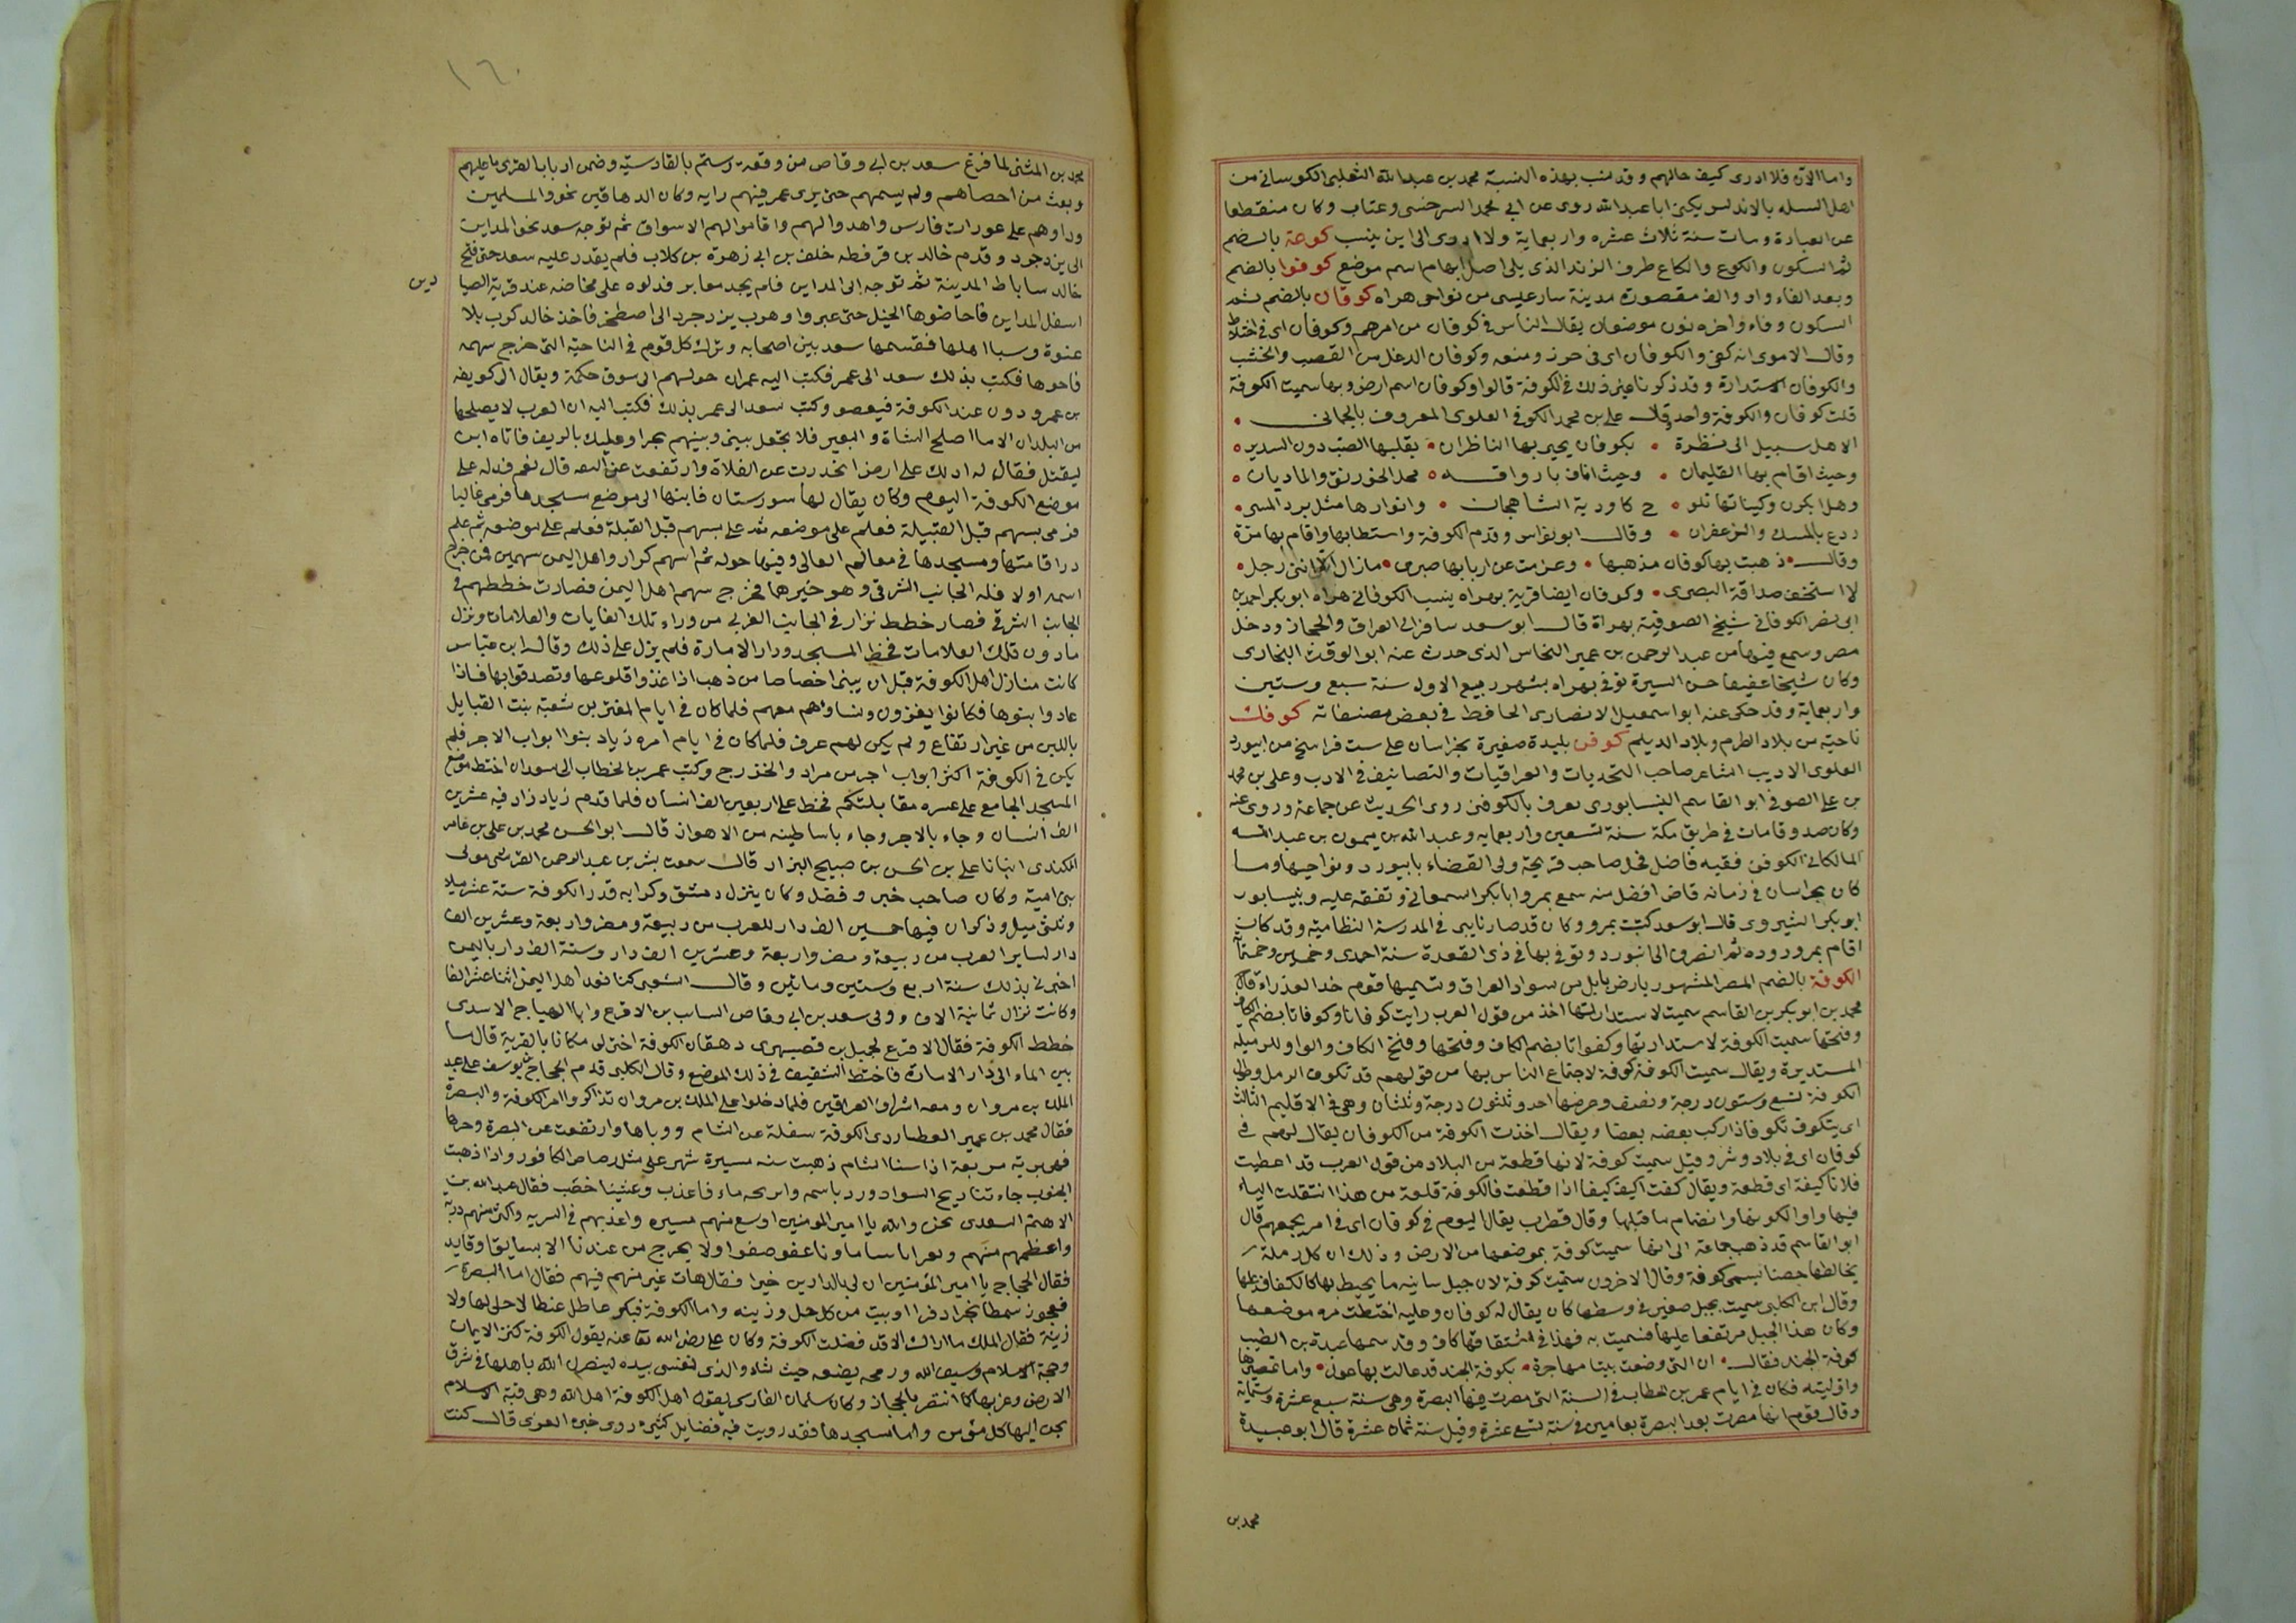 واما الان فلا ادرى كيف حالهم وقد نسب بهذه النسبة محمد بن عبد الله الثعلبى الكوسانى من
اهل السله بالاندلس يكنى ابا عبد الله روى عن ابى محمد السرخسى وعتاب وكان منقطعا
عن العبادة ومات سنة ثلاث عشره واربعماية ولا ادرى الى اين ينسب كوعة بالضم
ثم السكون والكوع والكاع طرف الزند الذى يلى اصل الابهام اسم موضع كوفوا بالضم
وبعد الفاء واو والف مقصورة مدينة سارعيسى من نواحى هراه كوفان بالضم ثم
السكون وفاء واخره نون موضعان يقال الناس فى كوفان من امرهم وكوفان اى فى اختلاط
وقال الاموى انه كفى والكوفان اى فى حرز ومنعه وكوفان الدغل من القصب والخشب
والكوفان الاستدارة وقد ذكرنا غير ذلك فى الكوفة قالوا وكوفان اسم ارض وبها سميت الكوفة
قلت كوفان والكوفة واحد وقال على بن محمد الكوفى العلوى المعروف بالحمانى
الا هل سبيل الى نظرة • بكوفان يحيى بها الناظران • يقلبها الصب دون السدير
وحيث اقام بها القليمان • وحيث اناف باروا قه • محمد الخورنق والماديان
وهل ابكرن وكيناتها تلو • ح كاودية الشاهجان • وانوارها مثل برد المسى
ردع بالمسك والزعفران • وقال ابو نواس وقدم الكوفة واستطابها واقام بها مرة
وقال • ذهبت بها كوفان مذهبها • وعزمت عن اربابها صبرى • مازال الا اننى رجل
لا استخف صداقة البصرى • وكوفان ايضا قرية بهراه ينسب الكوفانى هراه ابو بكر احمد بن
ابى نصر الكوفانى شيخ الصوفية بهراة قال ابو سعد سافر الى العراق والحجاز ودخل
مصر وسمع فيها من عبد الرحمن بن عمير النحاس الذى حدث عنه ابو الوقت البخارى
وكان شيخا عفيفا حسن السيرة توفى بهراه بشهر ربيع الاول سنة سبع وستين
واربعماية وقد حكى عنه ابو اسمعيل الانصارى الحافظ فى بعض مصنفاته كوفك
ناحية من بلاد الطرم وبلاد الديلم كوفن بليدة صغيرة بخراسان على ست فراسخ من ابيورد
العلوى الاديب الشاعر صاحب النجديات والعراقيات والتصانيف فى الادب وعلى بن محمد
بن على الصوفى ابو القاسم النيسابورى يعرف بالكوفنى روى الحديث عن جماعة وروى عنه
وكان صدوقا مات فى طريق مكة سنة تسعين واربعمايه وعبد الله بن ميمون بن عبد الله
المالكانى الكوفنى فقيه فاضل فحل صاحب قريحة ولى القضاء بابيورد ونواحيها وما
كان بخراسان فى زمانه قاض افضل منه سمع بمرو ابا بكر السمعانى وتفقه عليه وبنيسابور
ابو بكر الشيروى قال ابو سعد كتبت بمرو وكان قد صار نايبى فى المدرسة النظامية وقد كان
اقام بمرو روده ثم انصرف الى ابيورد وتوفى بها فى ذى القعدة سنة احدى وخمسين وخمسماة
الكوفة بالضم المصر المشهور بارض بابل من سواد العراق وتسميها قوم خد العذراء قال
محمد بن ابو بكر بن القاسم سميت لاستدارتها اخذ من قول العرب رايت كوفانا وكوفانا بضم الكاف
وفتحها سميت الكوفة لاستدارتها وكفوانا بضم الكاف وفتحها وفتح الكاف والواو للرميلة
المستديرة ويقال سميت الكوفة كوفة لاجتماع الناس بها من قولهم قد تكوف الرمل وطول
الكوفة تسع وستون درجة ونصف وعرضها احد وثلثون درجة وثلثان وهى فى الاقليم الثالث
اى يتكوف تكوفا اذا ركب بعضه بعضا ويقال اخذت الكوفة من الكوفان يقال لهم فى
كوفان اى فى بلاد وشر وقيل سميت كوفة لانها قطعة من البلاد من قول العرب قد اعطيت
فلانا كيفة اى قطعة ويقال كفت اكيف كيفا اذا قطعت فالكوفة قطعة من هذا انتقلت الياء
فيها واوا لكونها وانضمام ما قبلها وقال قطرب يقال اليوم فى كوفان اى فى امر يجمعهم قال
ابو القاسم قد ذهب جماعة الى انها سميت كوفة بموضعها من الارض وذلك ان كل رملة
يخالطها حصنا تسمى كوفة وقال الاخرون سميت كوفة لان جبل ساتيه ما يحيط بها كالكفافة عليها
وقال ابن الكلبى سميت بجبل صغير فى وسطها كان يقال له كوفان وعليه اختطت مره موضعها
وكان هذا الجبل مرتفعا عليها فسميت به فهذا فى اشتقاقها كاف وقد سماها عبدة بن الطيب
كوفة الجند فقال • ان التى وضعت بيتا مهاجرة • بكوفة الجند قد غالت بها غول • واما تمصيرها
واوليته فكان فى ايام عمر بن الخطاب فى السنة التى مصرت فيها البصرة وهى سنة سبع عشرة وستماية
وقال قوم انها مصرت بعد البصرة بعامين فى سنة تسع عشرة وقيل سنة ثمان عشرة قال ابو عبيدة
محمد بن
١٦٠
محمد بن المثنى لما فرغ سعد بن ابى وقاص من وقعة رستم بالقادسية وضمن ارباب القرى ما عليهم
وبعث من احصاهم ولم يسمهم حتى يرى عمر فيهم رايه وكان الدهاقين نحو والمسلمين
ودلوهم على عورات فارس واهدوا لهم واقاموا لهم الاسواق ثم توجه سعد نحو المداين
الى يزدجرد وقدم خالد بن قرفطه خلف بن ابى زهرة بن كلاب فلم يقدر عليه سعد حتى فتح
خالد ساباط المدينة ثم توجه الى المداين فلم يجد معابر فدلوه على مخاضه عند قرية الصيا
دين
اسفل المداين فاخاضوها الخيل حتى عبروا وهرب يزدجرد الى اصطخر فاخذ خالد كوب بلا
عنوة وسبا اهلها فقسمها سعد بين اصحابه ونزل كل قوم فى الناحية التى خرج سهمه
فاحوها فكتب بذلك سعد الى عمر فكتب اليه عمر ان حولهم الى سوق حكمة ويقال الى كويفه
بن عمر ودون عند الكوفة فبعصو وكتب سعد الى عمر بذلك فكتب اليه ان العرب لا يصلحها
من البلدان الا ما اصلح الشاة والبعير فلا تجعل بينى وبينهم بحرا وعليك بالريف فاتاه ابن
ليقتل فقال له ادلك على ارض انحدرت عن الفلاة وارتفعت عن البقه قال نعم فدله على
موضع الكوفة اليوم وكان يقال لها سورستان فانتهى الى موضع مسجدها فرمى غاليا
فرمى بسهم قبل القبيلة فعلم على موضعه ثم علا بسهم قبل القبلة فعلم على موضعه ثم علم
دار اقامتها ومسجدها فى معالم العالى وفيها حوله ثم اسهم كرار واهل اليمن سهمين فمن خرج
اسمه اولا فله الجانب الشرقى وهو خيرها فخرج سهم اهل اليمن فصارت خططهم فى
الجانب الشرقى فصار خطط نزار فى الجانب الغربى من وراء تلك الغايات والعلامات ونزل
ما دون تلك العلامات فخط المسجد ودار الامارة فلم يزل على ذلك وقال ابن عباس
كانت منازل اهل الكوفة قبل ان يبنى اخصاصا من ذهب اذا غزوا قلوعها وتصدقوا بها فاذا
عادوا بنوها فكانوا يغزون ونساؤهم معهم فلما كان فى ايام المغيرة بن شعبة بنت القبايل
باللبن من غير ارتفاع ولم يكن لهم غرف فلما كان فى ايام امرة زياد بنوا ابواب الاجر فلم
يكن فى الكوفة اكثر ابواب اجر من مراد والخذرج وكتب عمر بن الخطاب الى سعد ان اختط موضع
المسجد الجامع على عده مقابلتكم فخط على اربعين الف انسان فلما قدم زياد زاد فيه عشرين
الف انسان وجاء بالاجر وجاء باساطينه من الاهواز قال ابو الحسن محمد بن على بن عامر
الكندى انبانا على بن الحسن بن صبيح البزار قال سمعت بشر بن عبد الوهاب القرشى مولى
بنى امية وكان صاحب خير وفضل وكان ينزل دمشق وذكر انه قدر الكوفة ستة عشر ميلا
وثلثى ميل وذكر ان فيها خمسين الف دار للعرب من ربيعة ومضر واربعة وعشرين الف
دار لساير العرب من ربيعة ومضر واربعة وعشرين الف دار وستة الف دار باليمن
اخبرنى بذلك سنة اربع وستين وماتين وقال الشعبى كنا نعد اهل اليمن اثنا عشر الفا
وكانت نزار ثمانية الاف وولى سعد بن ابى وقاص الساب بن الاقرع وابا الهياج الاسدى
خطط الكوفة فقال الاقرع لجميل بن قصبهرى دهقان الكوفة اختر لى مكانا بالقرية قال ما
بين الماء الى دار الامارة فاختط الشقيف فى ذلك الموضع وقال الكلبى قدم الحجاج بن يوسف على عبد
الملك بن مروان ومعه اشراف العراقين فلما دخلوا على الملك بن مروان تذاكروا امر الكوفة والبصرة
فقال محمد بن عمير العطاردى الكوفة سفلة عن الشام ووباها وارتفعت عن البصرة وحرها
فهى برية مربعة اذا اسنا الشام ذهبت سنه مسيرة شهر على مثل رصاص الكافور واذا ذهبت
الجنوب جاءتنا ريح السواد ورد باسمه واترجه ماء فاعذب وعيشنا خصب فقال عبد الله بن
الاهتم السعدى نحن والله يا امير المومنين اوسع منهم مسيره واعذبهم فى السريه واكثر منهم دربة
واعظمهم منهم ومعرابا ساما وناعفو صفوا ولا يخرج من عندنا الا سايق او قايد
فقال الحجاج يا امير المؤمنين ان لى بالدارين خيرا فقال هات غير متهم فيهم فقال اما البصرة
فعجوز شمطا بخراد فرا اوبيت من كل حل وزينه واما الكوفة فبكر عاطل عيطا لا حلى لها ولا
زينة فقال الملك ما اراك الا قد فضلت الكوفة وكان على رضى الله تعا عنه يقول الكوفة كنز الايمان
وحجة الاسلام وسيف الله ورمحه يضعه حيث شاء والذى نفسى بيده لينصرن الله باهلها فى شرق
الارض وغربها كما انتصر بالحجاز وكان سلمان الفارسى يقول اهل الكوفة اهل الله وهى قبة الاسلام
يحن اليها كل مؤمن واما مسجدها فقد رويت فيه فضايل كثيره روى خبره العرنى قال كنت